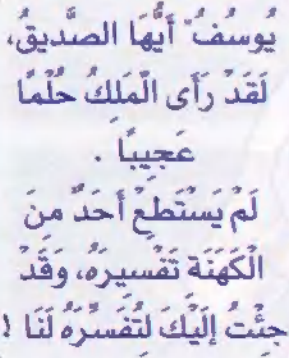 يُوسُفُ أَيُّهَا الصَّدِيقُ،
لَقَدْ رَأَى الْمَلِكُ حُلْمًا
عَجِيبًا .
لَمْ يَسْتَطِعْ أَحَدٌ مِنَ
الْكَهَنَةِ تَفْسِيرَهُ، وَقَدْ
جِئْتُ إِلَيْكَ لِتُفَسِّرَهُ لَنَا !